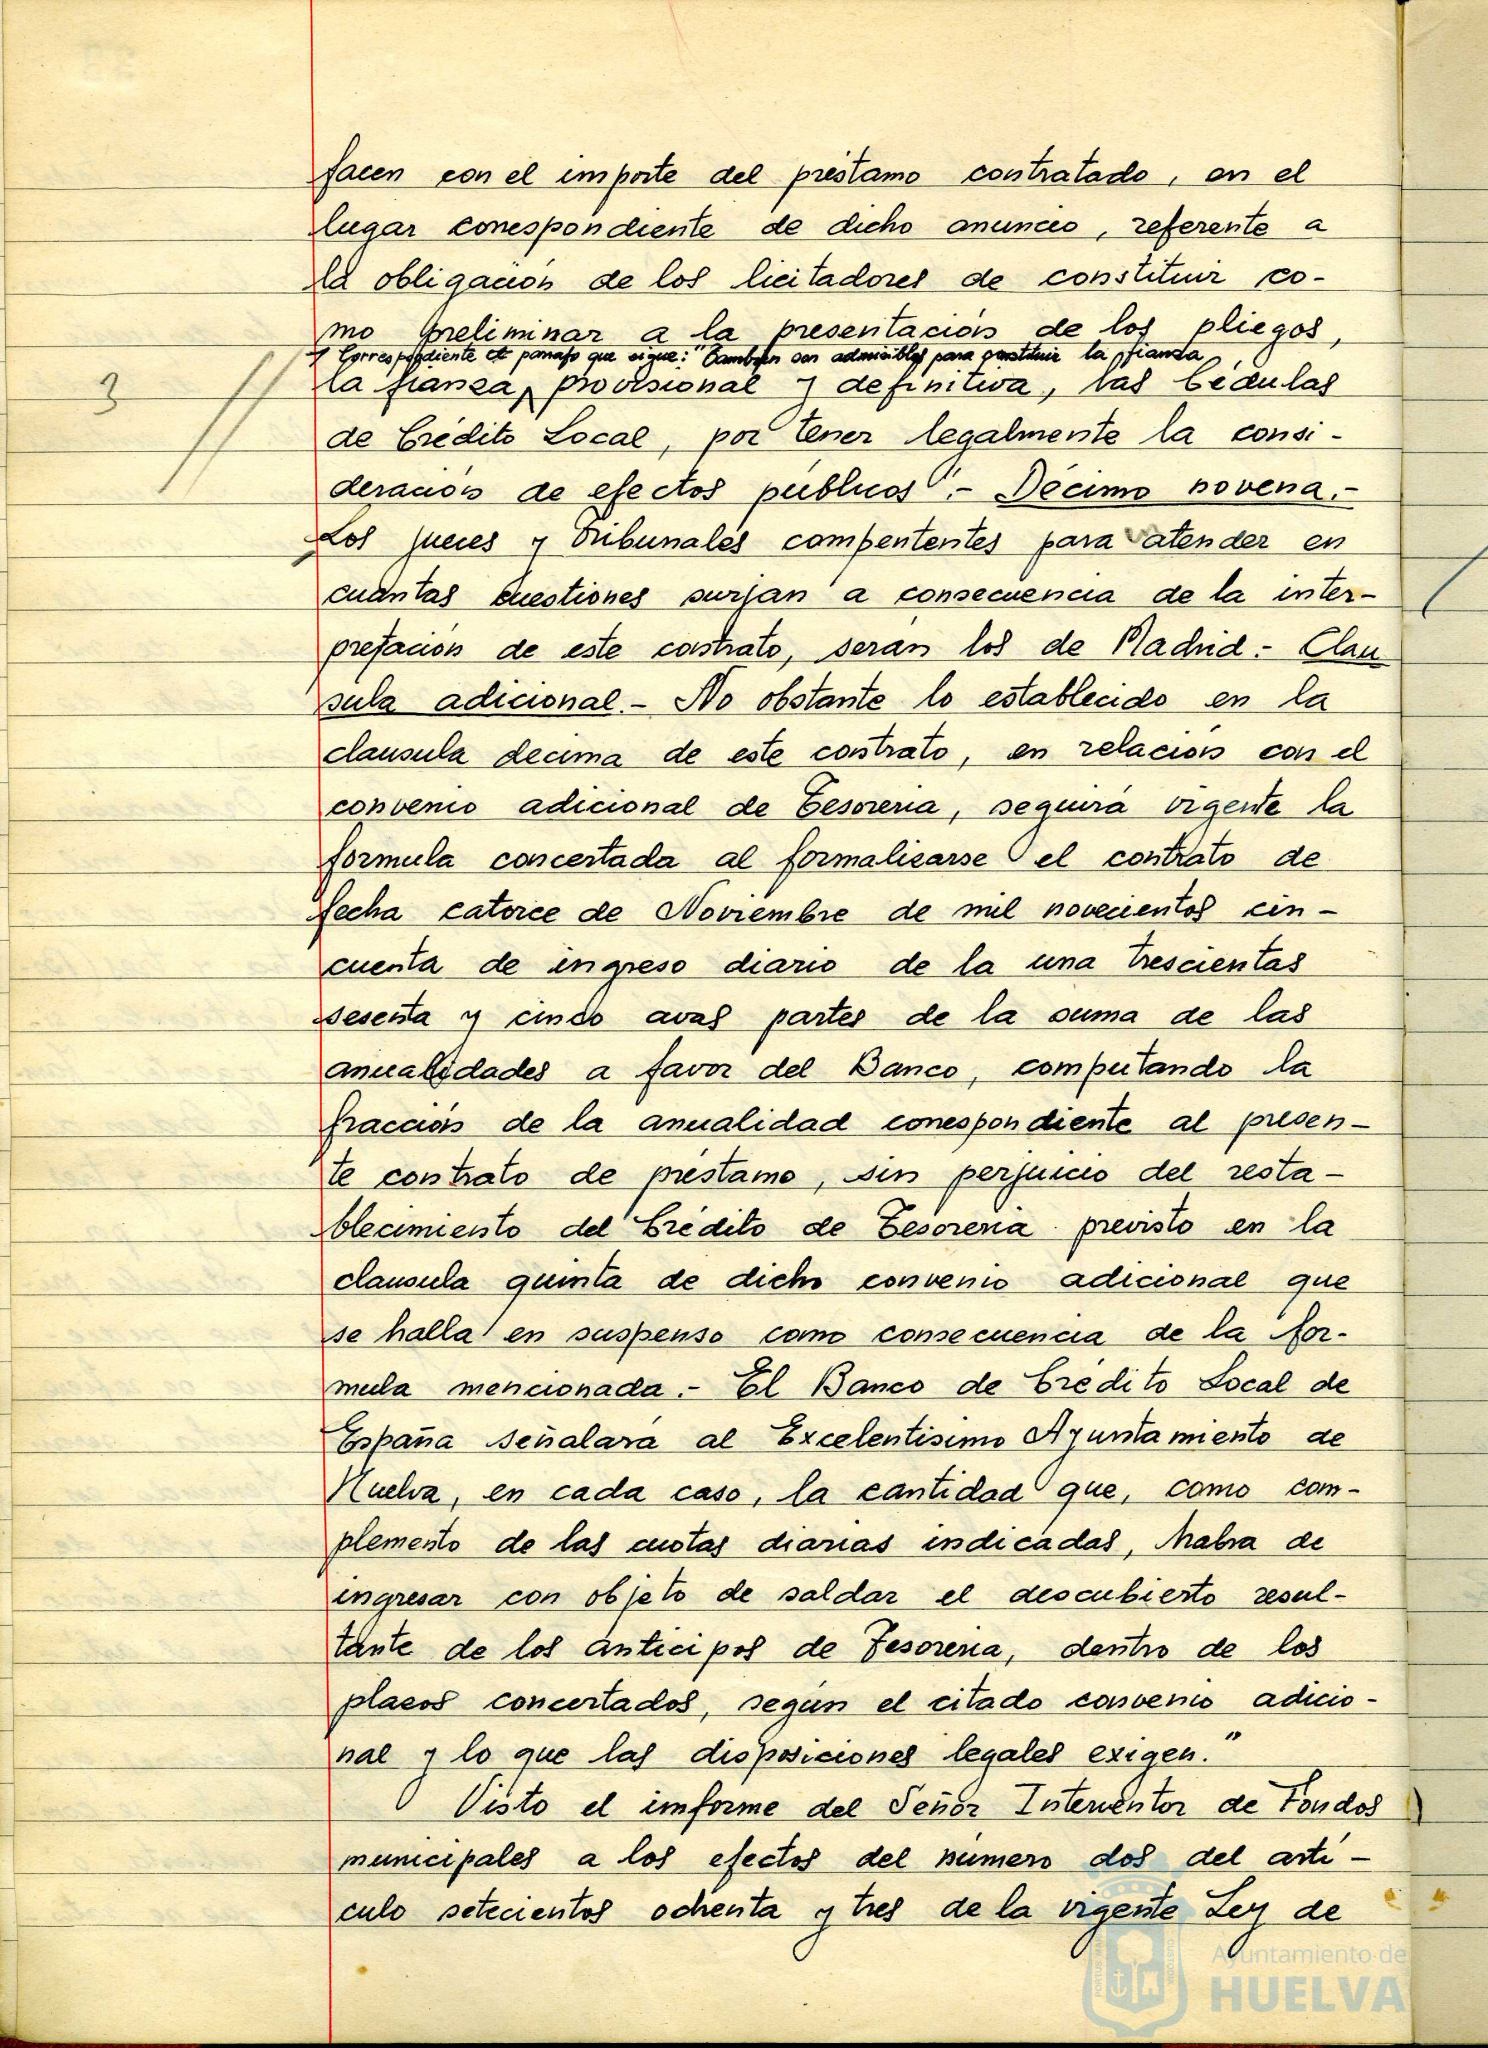 facen con el importe del préstamo contratado, en el
lugar correspondiente de dicho anuncio, referente a
la obligación de los licitadores de constituir co-
mo preliminar a la presentación de los pliegos,
Correspondiente et parrafo que sigue: "Tambien son admisibles para constituir la fianza
3
la fianza, provisional y definitiva, las Cédulas
de Crédito Local, por tener legalmente la consi-
deración de efectos públicos".- Décimo novena.-
Los jueces y Tribunales compententes para atender en
cuantas cuestiones surjan a consecuencia de la inter-
pretación de este contrato, serán los de Madrid.- Clau
sula adicional.- No obstante lo establecido en la
clausula decima de este contrato, en relación con el
convenio adicional de Tesoreria, seguirá vigente la
formula concertada al formalizarse el contrato de
fecha catorce de Noviembre de mil novecientos cin-
cuenta de ingreso diario de la una trescientas
sesenta y cinco avas partes de la suma de las
anualidades a favor del Banco, computando la
fracción de la anualidad correspondiente al presen-
te contrato de préstamo, sin perjuicio del resta-
blecimiento del Crédito de Tesoreria previsto en la
clausula quinta de dicho convenio adicional que
se halla en suspenso como consecuencia de la for-
mula mencionada.- El Banco de Crédito Local de
España señalará al Excelentisimo Ayuntamiento de
Huelva, en cada caso, la cantidad que, como com-
plemento de las cuotas diarias indicadas, habra de
ingresar con objeto de saldar el descubierto resul-
tante de los anticipos de Tesoreria, dentro de los
plazos concertados, según el citado convenio adicio-
nal y lo que las disposiciones legales exigen."
Visto el imforme del Señor Interventor de Fondos
municipales a los efectos del número dos del artí-
culo setecientos ochenta y tres de la vigente Ley de
Ayuntamiento de
HUELVA